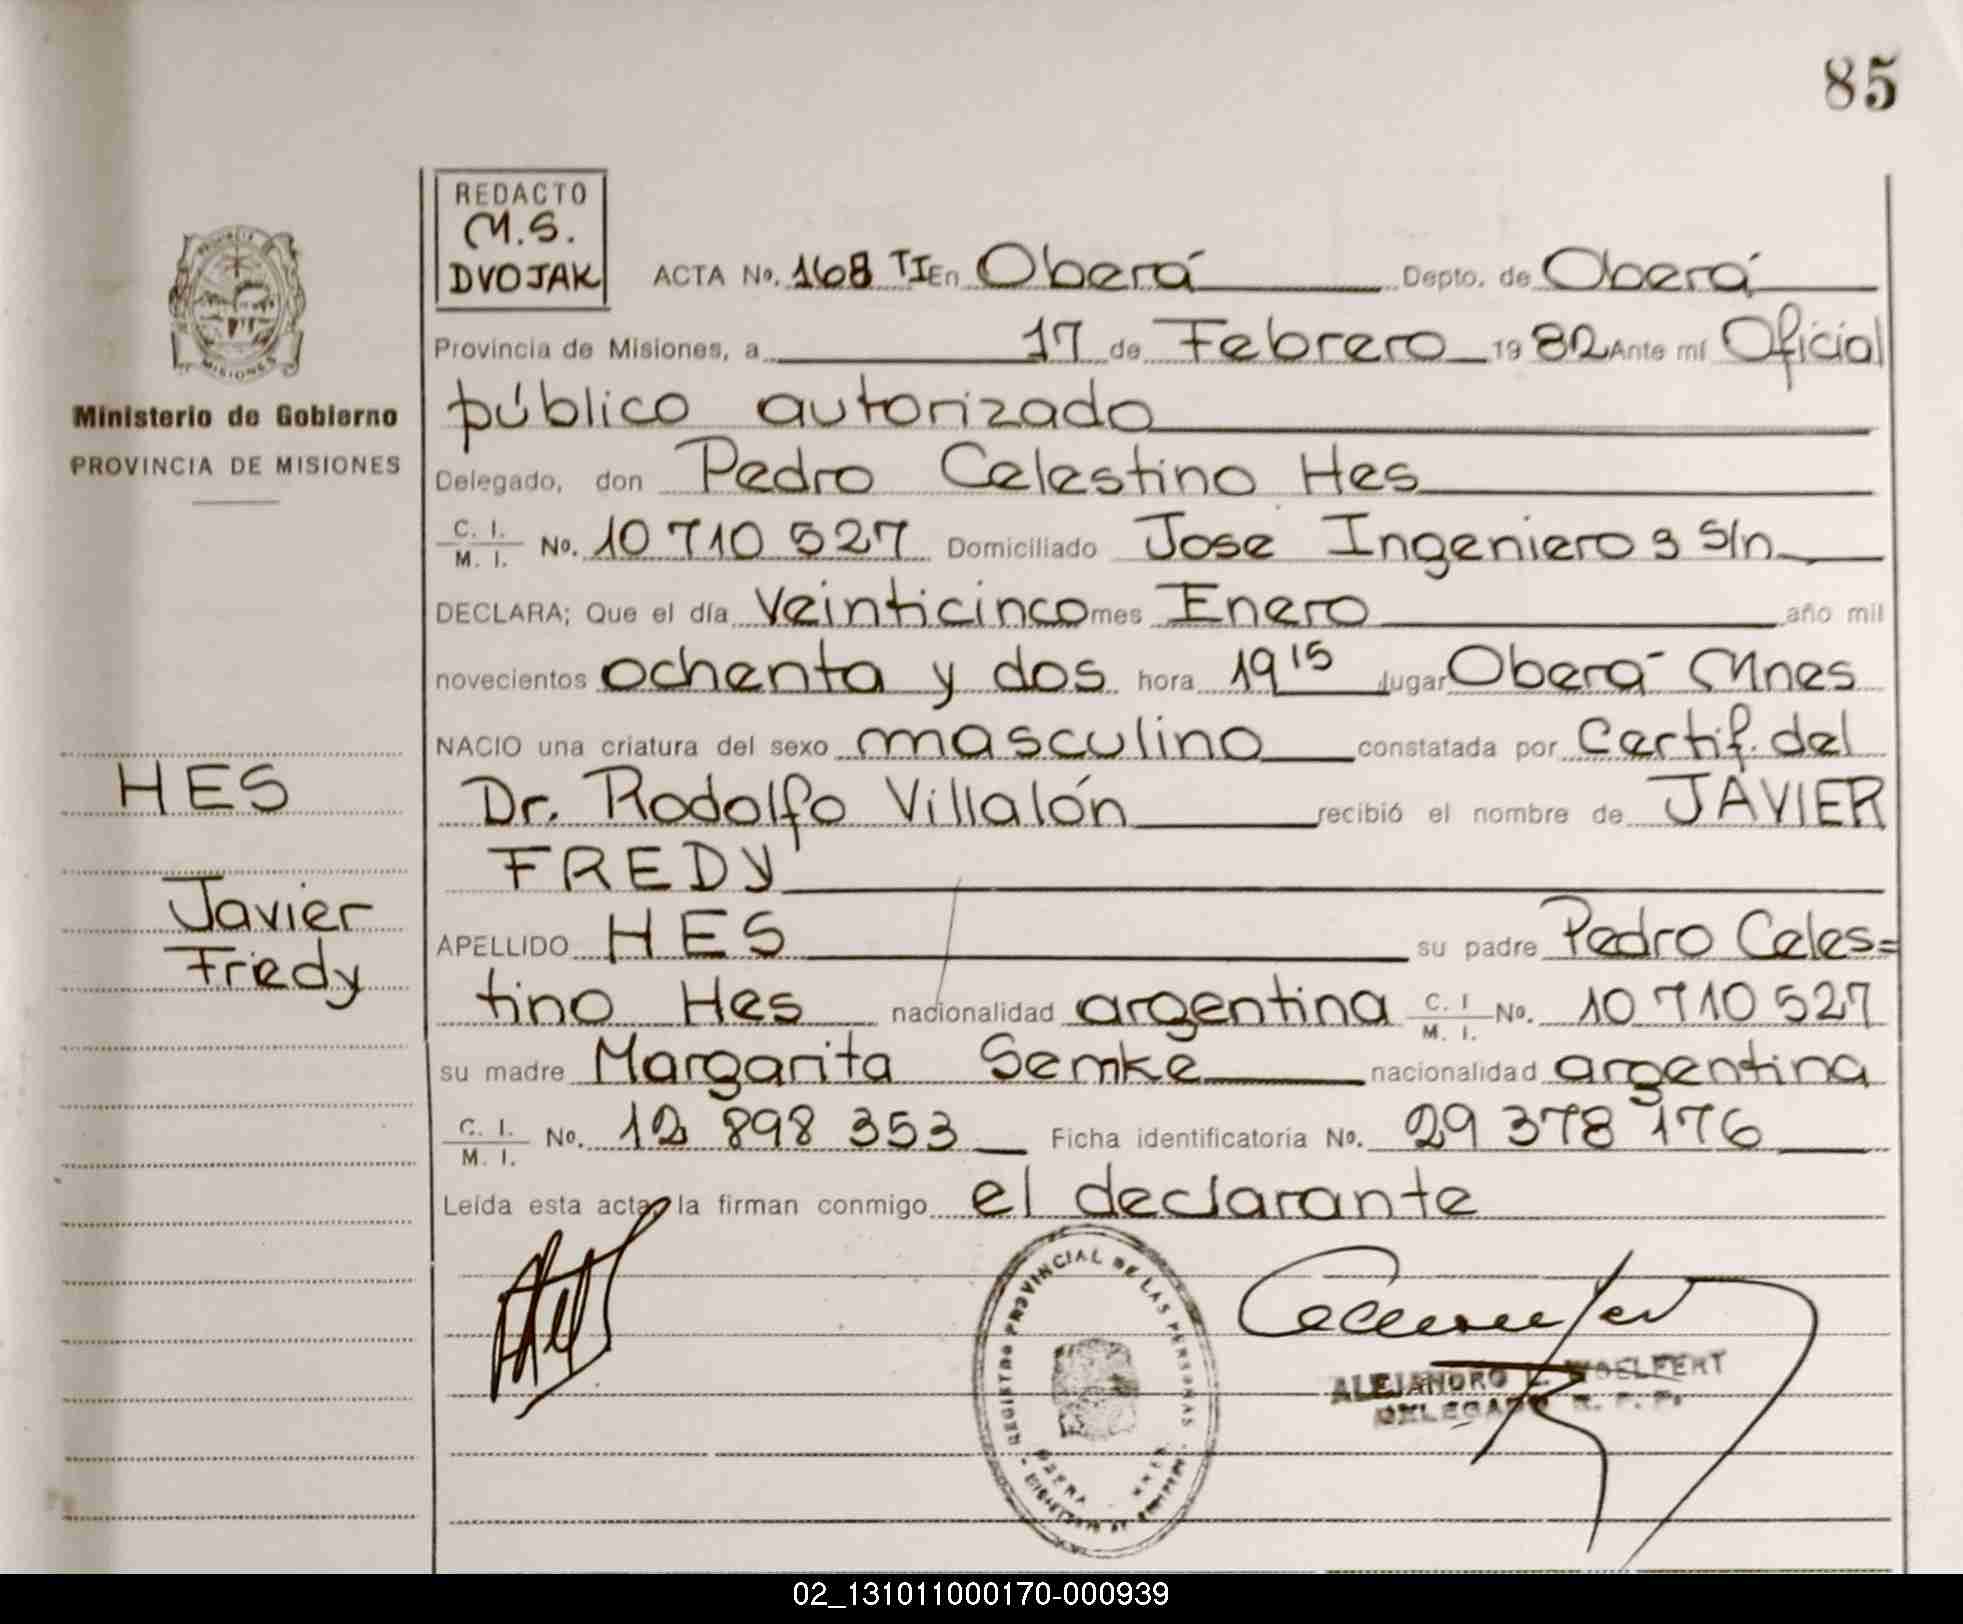 85
REDACTO
M.S.
DVOJAK
ACTA No. 168 TI En Oberá Depto. de Oberá
Provincia de Misiones, a 17 de Febrero 1982 Ante mí Oficial
público autorizado
Ministerio de Gobierno
PROVINCIA DE MISIONES
Delegado, don Pedro Celestino Hes
C. I. M. I. No. 10 710 527 Domiciliado Jose Ingenieros s/n
DECLARA; Que el día veinticinco mes Enero año mil
novecientos ochenta y dos hora 19 15 lugar Oberá Mnes
NACIO una criatura del sexo masculino constatada por Certif. del
Dr. Rodolfo Villalón recibió el nombre de JAVIER
FREDY
HES
Javier
Fredy
APELLIDO HES su padre Pedro Celes=
tino Hes nacionalidad argentina C. I M. I. No. 10 710 527
su madre Margarita Semke nacionalidad argentina
C. I. M. I. No. 12 898 353 Ficha identificatoria No. 29 378 176
Leída esta acta, la firman conmigo el declarante
REGISTRO PROVINCIAL DE LAS PERSONAS
OBERA
ALEJANDRO L. WOELFERT
DELEGADO R. P. P.
PROVINCIA DE
MISIONES
02_131011000170-000939